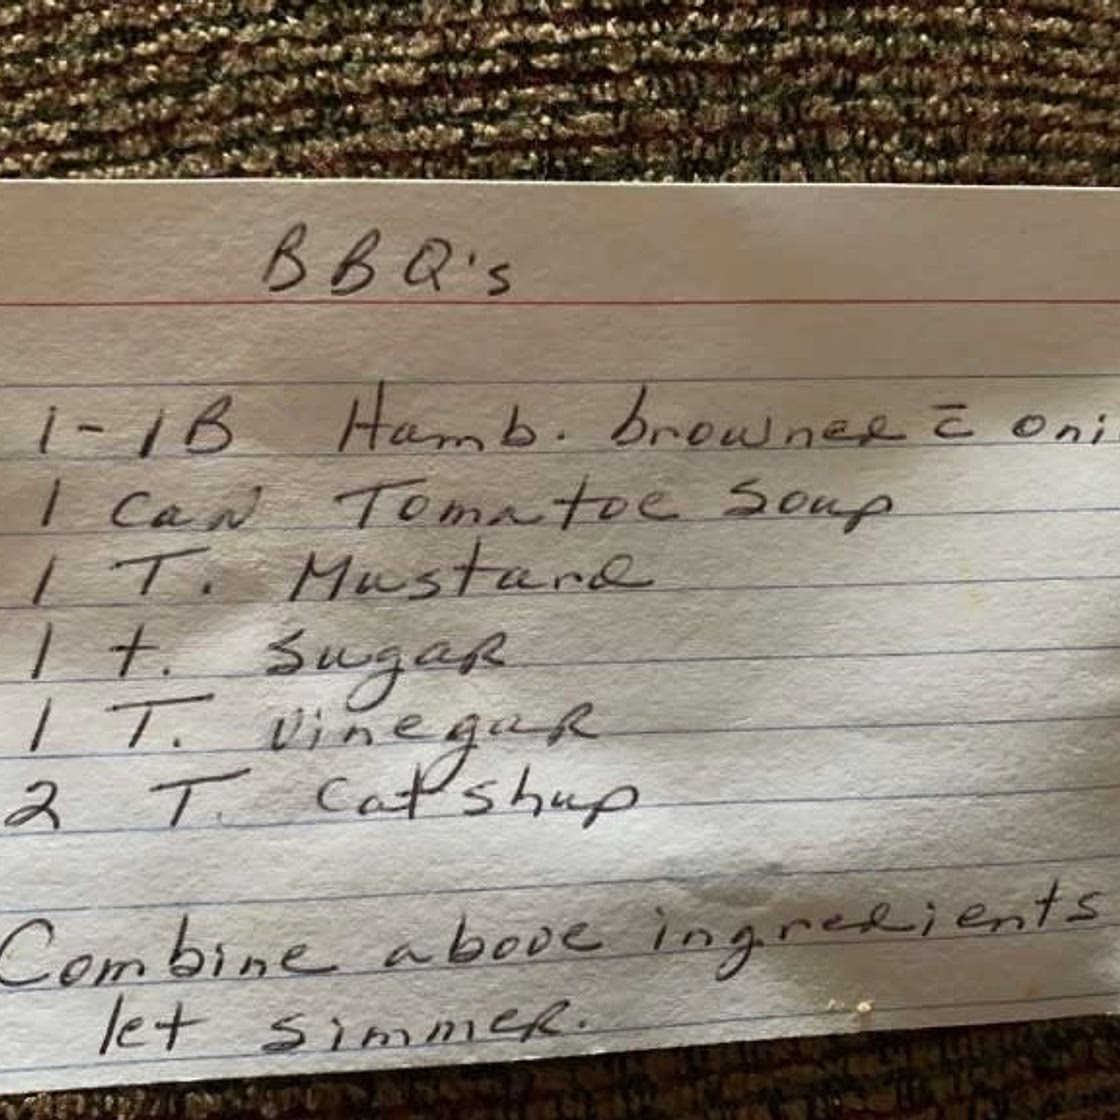 BBQ's
1-1B Hamb. browned c̄ oni
1 Can Tomatoe Soup
1 T. Mustard
1 t. Sugar
1 T. Vinegar
2 T. Catshup
Combine above ingredients
let simmer.